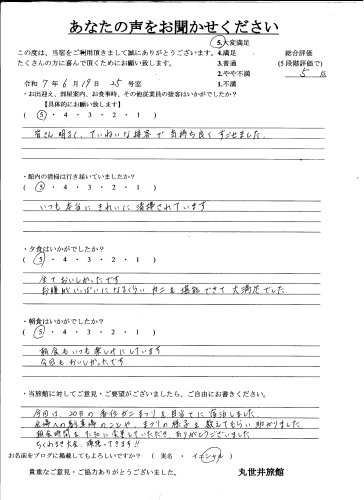 あなたの声をお聞かせください
5.大変満足
この度は、当宿をご利用頂きまして誠にありがとうございます。 4.満足 総合評価
たくさんの方に喜んで頂くためにお願い致します。 3.普通 (5段階評価で)
2.やや不満 5 点
令和 7年 6月 19日 25号室 1.不満
・お出迎え、部屋案内、お食事時、その他従業員の接客はいかがでしたか?
【具体的にお願い致します】
( 5 ・ 4 ・ 3 ・ 2 ・ 1 )
皆さん明るく、ていねいな接客で気持ち良くすごせました。
・館内の清掃は行き届いていましたか?
( 5 ・ 4 ・ 3 ・ 2 ・ 1 )
いつも本当にきれいに清掃されています。
・夕食はいかがでしたか?
( 5 ・ 4 ・ 3 ・ 2 ・ 1 )
全ておいしかったです
お腹がいっぱいになるくらいカニを堪能できて大満足でした
・朝食はいかがでしたか?
( 5 ・ 4 ・ 3 ・ 2 ・ 1 )
朝食もいつも楽しみにしています
今日もおいしかったです
・当旅館に対してご意見・ご要望がございましたら、ご自由にお書きください。
今回は、20日の香住ガニまつりを目当てに宿泊しました。
まつりの様子を教えてもらい助かりました。
朝食時間を7:30に変更していただき、ありがとうございました
お名前をブログに掲載してもよろしいですか? ( 実名 ・ イニシャル )
貴重なご意見・ご協力ありがとうございました。 丸世井旅館